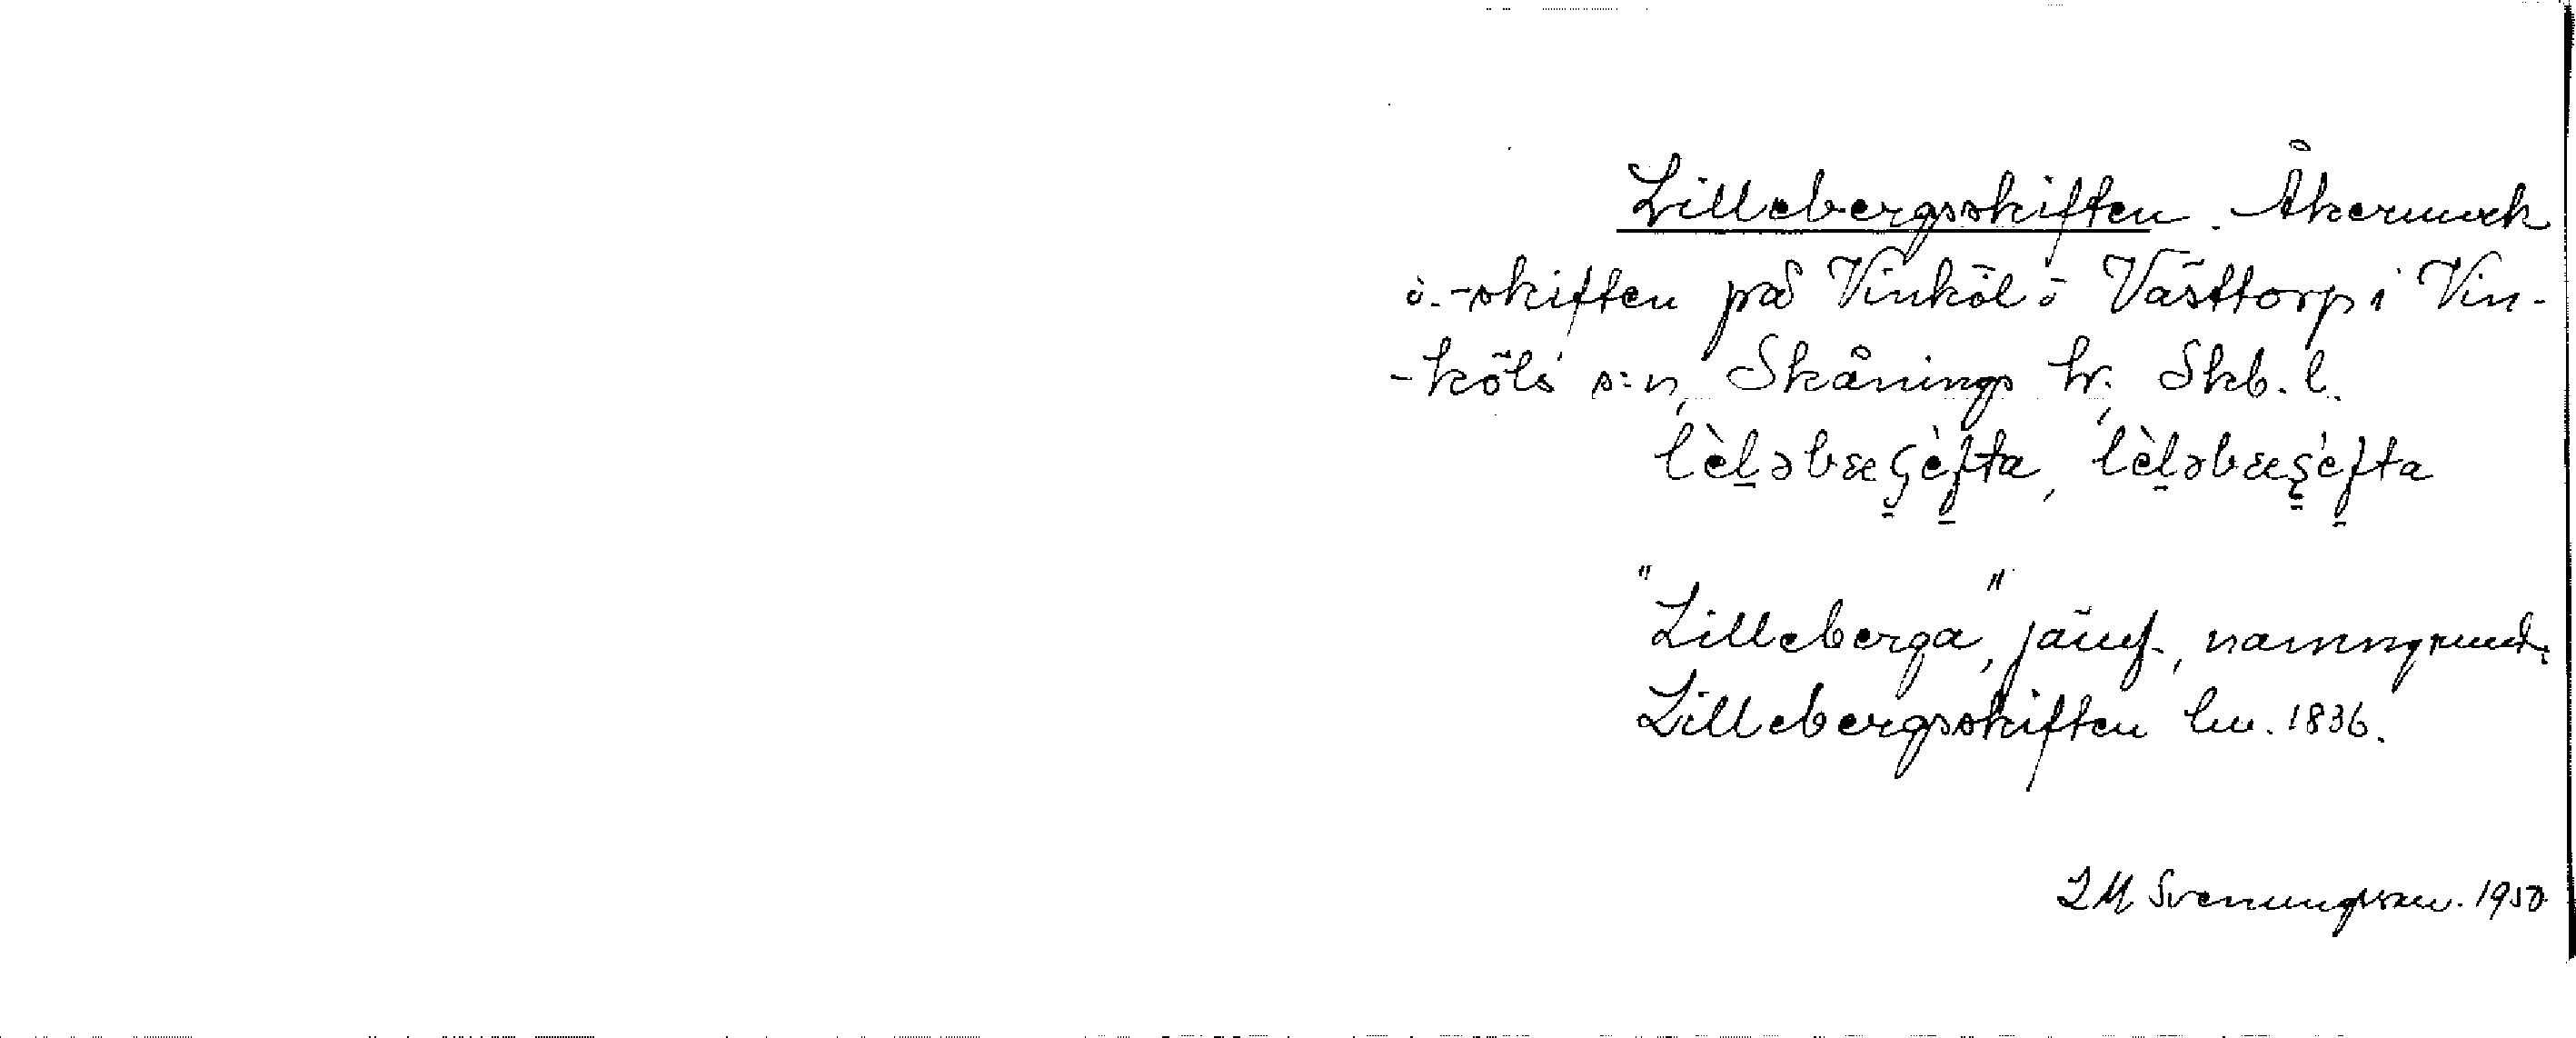 Lillebergsskiften. Åkermark
o. -skiften på Vinköl o Västtorp i Vin-
-köls s:n, Skånings hr, Skb. l.
lèl̠əbæçèfta, lèl̠əbæşèfta
"Lilleberga", jämf., namngrund.
Lillebergsskiften lm. 1836.
LM Svenungsson. 1950